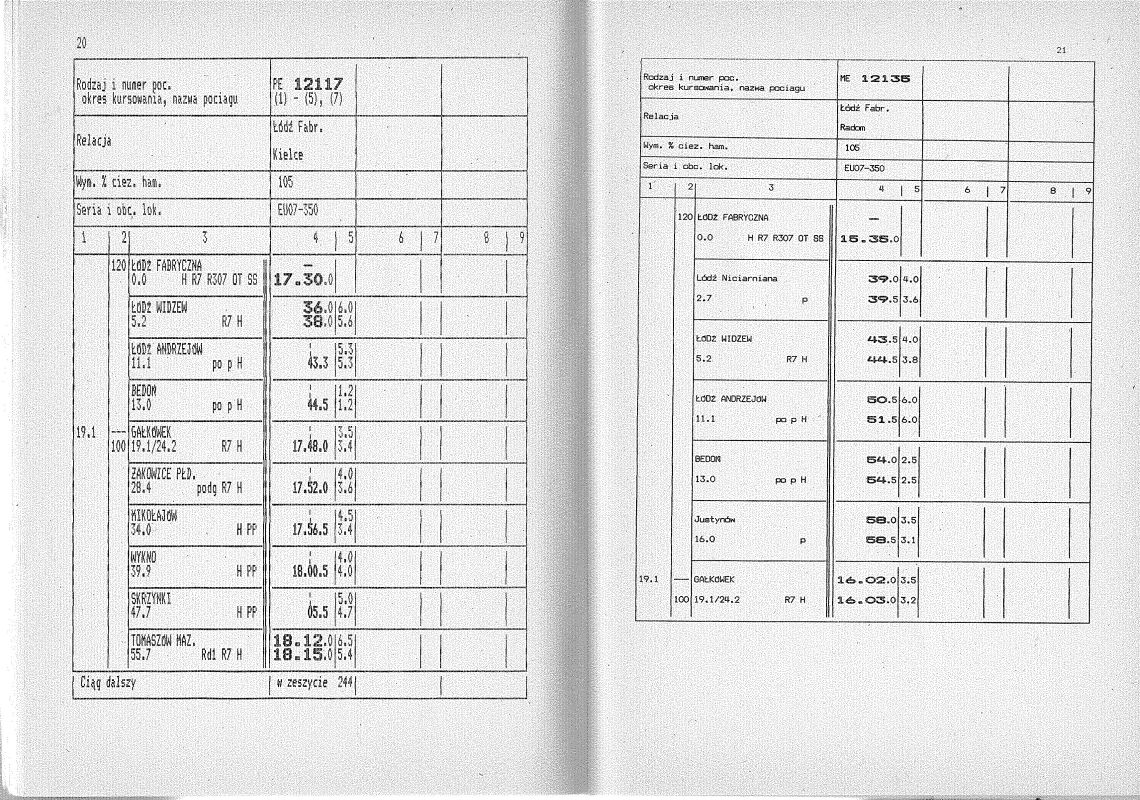 20
Rodzaj i numer poc. PE 12117
okres kursowania, nazwa pociagu (1) - (5), (7)
Relacja Łódź Fabr.
Kielce
Wym. % ciez. ham. 105
Seria i obc. lok. EU07-350
1 2 3 4 5 6 7 8 9
120 ŁÓDŹ FABRYCZNA —
0.0 H R7 R307 OT SS 17.30.0
ŁÓDŹ WIDZEW 36.0 6.0
5.2 R7 H 38.0 5.6
ŁÓDŹ ANDRZEJÓW ¦ 5.3
11.1 po p H 43.3 5.3
BEDOŃ ¦ 1.2
13.0 po p H 44.5 1.2
19.1 --- GAŁKÓWEK ¦ 3.5
100 19.1/24.2 R7 H 17.48.0 3.4
ŻAKOWICE PŁD. ¦ 4.0
28.4 podg R7 H 17.52.0 3.6
MIKOŁAJÓW ¦ 4.5
34.0 H PP 17.56.5 3.4
WYKNO ¦ 4.0
39.9 H PP 18.00.5 4.0
SKRZYNKI ¦ 5.0
47.7 H PP 05.5 4.7
TOMASZÓW MAZ. 18.12.0 6.5
55.7 Rd1 R7 H 18.15.0 5.4
Ciąg dalszy w zeszycie 244
21
Rodzaj i numer poc. ME 12135
okres kursowania, nazwa pociagu
Relacja Łódź Fabr.
Radom
Wym. % ciez. ham. 105
Seria i obc. lok. EU07-350
1 2 3 4 5 6 7 8 9
120 ŁÓDŹ FABRYCZNA —
0.0 H R7 R307 OT SS 15.35.0
Łódź Niciarniana 39.0 4.0
2.7 p 39.5 3.6
ŁÓDŹ WIDZEW 43.5 4.0
5.2 R7 H 44.5 3.8
ŁÓDŹ ANDRZEJÓW 50.5 6.0
11.1 po p H 51.5 6.0
BEDOŃ 54.0 2.5
13.0 po p H 54.5 2.5
Justynów 58.0 3.5
16.0 p 58.5 3.1
19.1 --- GAŁKÓWEK 16.02.0 3.5
100 19.1/24.2 R7 H 16.03.0 3.2